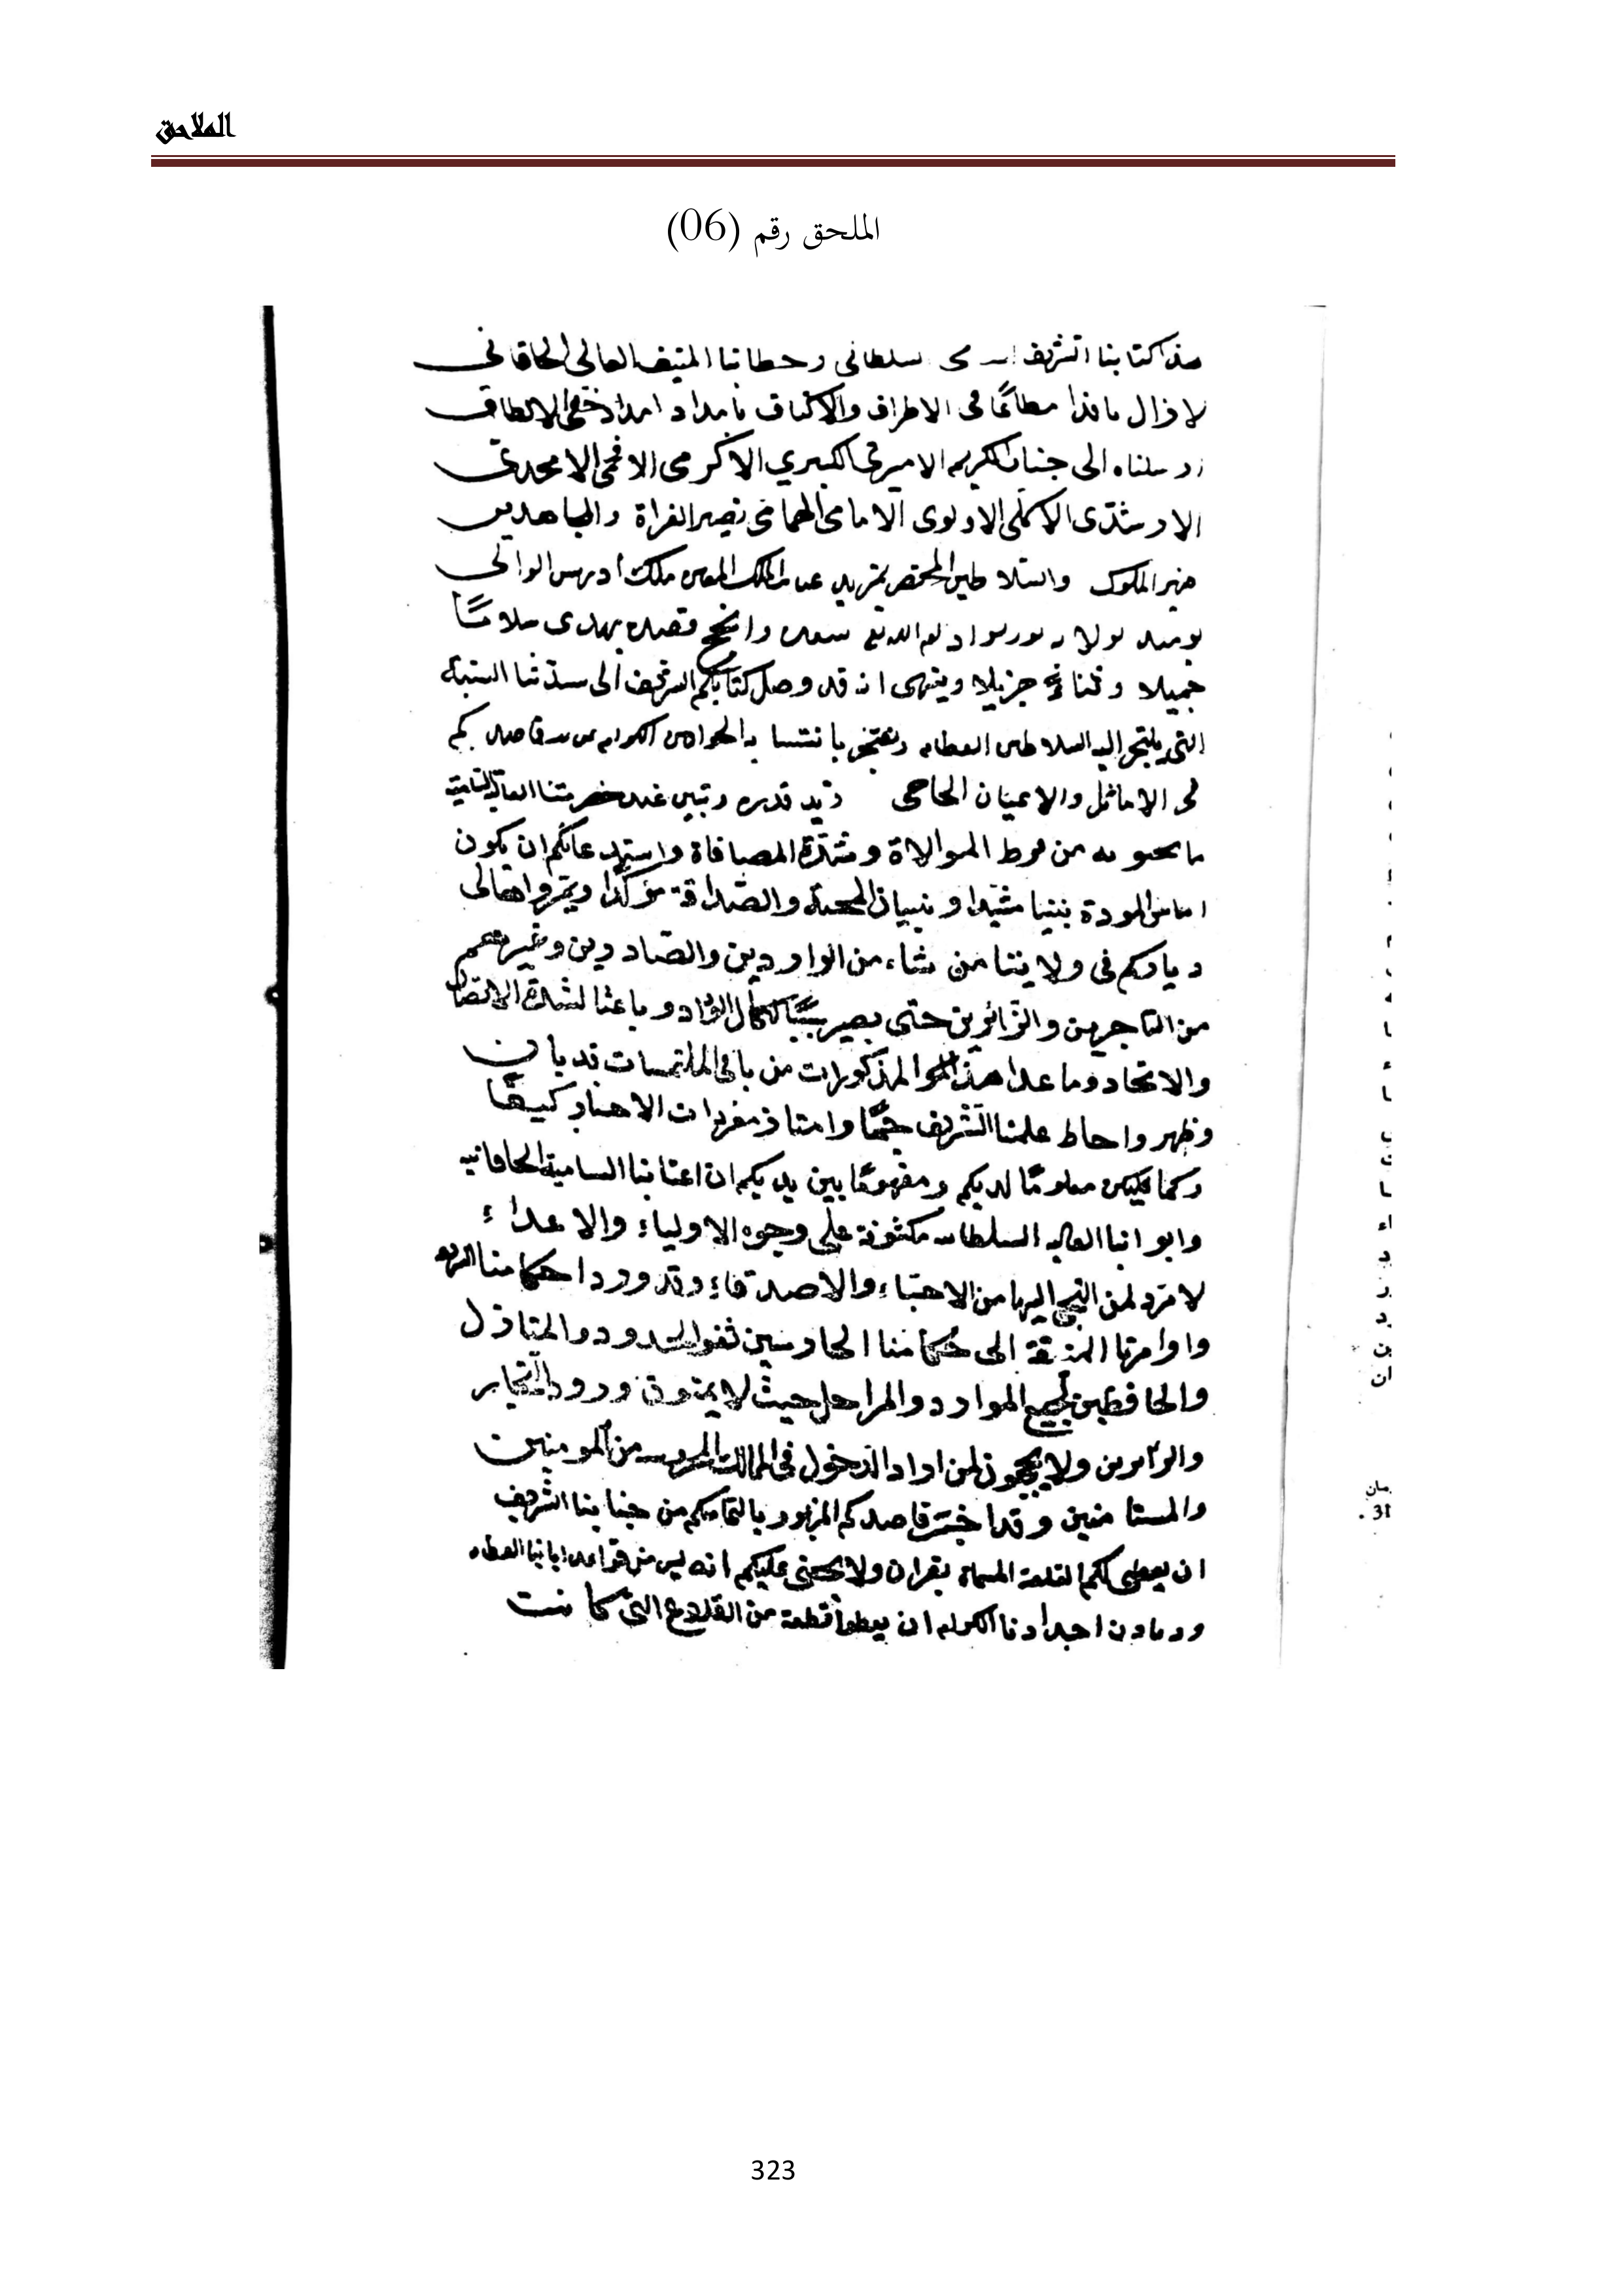 الملاحق
الملحق رقم (06)
هذا كتابنا الشريف سلطاني وخطابنا المنيف العالي الخاقاني
لا زال نافذا مطاعًا فى الاطراف والاكناف بامداد خفى الالطاف
ارسلناه الى جناب الكريم الاميرى الكبيري الاكرمى الافخمى الامجدى
الارشدى الاكملى الامامى الهمامى نصير الغزاة والمجاهدين
ظهير الملوك والسلاطين المختص بمزيد عنايت الملك المعين ملك ادريس الوالى
يومئذ بولاية بورنو ادام الله سعده وانجح قصده يهدى سلامًا
جميلا وثناء جزيلا وينهى انه قد وصل كتابكم الشريف الى سدتنا السنية
التى يلتجى اليه السلاطين العظام وتفتخر بانتسابه الخواقين الكرام من يد قاصدكم
فى الاماثل والاعيان الحاجى زيد قدره وتبين عند حضرتنا العالية السامية
ما يحتويه من فرط الموالاة وشدة المصافاة واستدعائكم ان يكون
اساس المودة مشيدا وبنيان المحبة والصداقة مؤكدا ويمر اهالى
دياركم فى ولايتنا من شاء من الواردين والصادرين وغيرهم
من التاجرين والزائرين حتى يصير سببًا لكمال الوداد وباعثا لشدة الاتصال
والاتحاد وما عدا هذه المذكورات من باقى الملتمسات قد بان
وظهر واحاط علمنا الشريف جمًا وامتاز مفردات الاخبار كيفًا
وكما فليكن معلومًا لديكم ومفهومًا بين يديكم ان اعتابنا السامية الخاقانيه
وابوابنا العاليه السلطانيه مكشوفة على وجوه الاولياء والاعداء
لا مرد لمن التجى اليها من الاحباء والاصدقاء وقد ورد احكامنا الشريفه
واوامرنا المنيفة الى حكامنا الحارسين ثغور الحدود والمنازل
والحافظين لجميع الموارد والمراحل حيث لا يمنعون ورود التجاير
والزائرين ولا يحجون لمن اراد الدخول فى الممالك المحروسه من المومنين
والمستامنين وقد اخبر قاصدكم المزبور بالتماسكم من جنابنا الشريف
ان يعطى لكم القلعة المسماة بقران ولا يخفى عليكم انه ليس من قواعد ابائنا العظام
ودماون اجدادنا الكرام ان يعطوا قطعة من القلاع التى كانت
323